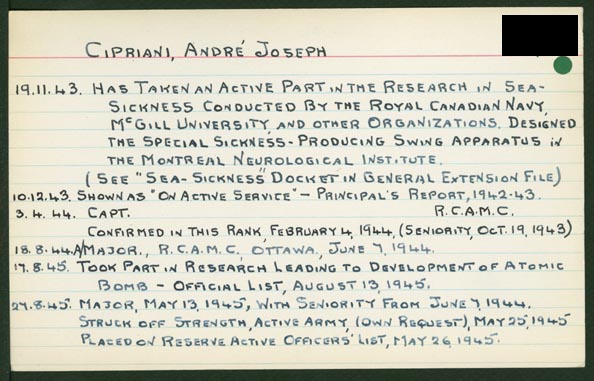 CIPRIANI, ANDRÉ JOSEPH
19.11.43. HAS TAKEN AN ACTIVE PART IN THE RESEARCH IN SEA-
SICKNESS CONDUCTED BY THE ROYAL CANADIAN NAVY,
MCGILL UNIVERSITY, AND OTHER ORGANIZATIONS. DESIGNED
THE SPECIAL SICKNESS-PRODUCING SWING APPARATUS IN
THE MONTREAL NEUROLOGICAL INSTITUTE.
(SEE "SEA-SICKNESS" DOCKET IN GENERAL EXTENSION FILE)
10.12.43. SHOWN AS "ON ACTIVE SERVICE" - PRINCIPAL'S REPORT, 1942-43.
3.4.44. CAPT. R.C.A.M.C.
CONFIRMED IN THIS RANK, FEBRUARY 4, 1944, (SENIORITY, OCT. 19, 1943)
18.8.44. A/MAJOR., R.C.A.M.C., OTTAWA, JUNE 7, 1944.
17.8.45. TOOK PART IN RESEARCH LEADING TO DEVELOPMENT OF ATOMIC
BOMB - OFFICIAL LIST, AUGUST 13, 1945.
27.8.45. MAJOR, MAY 13, 1945, WITH SENIORITY FROM JUNE 7, 1944.
STRUCK OFF STRENGTH, ACTIVE ARMY, (OWN REQUEST), MAY 25, 1945
PLACED ON RESERVE ACTIVE OFFICERS' LIST, MAY 26, 1945.